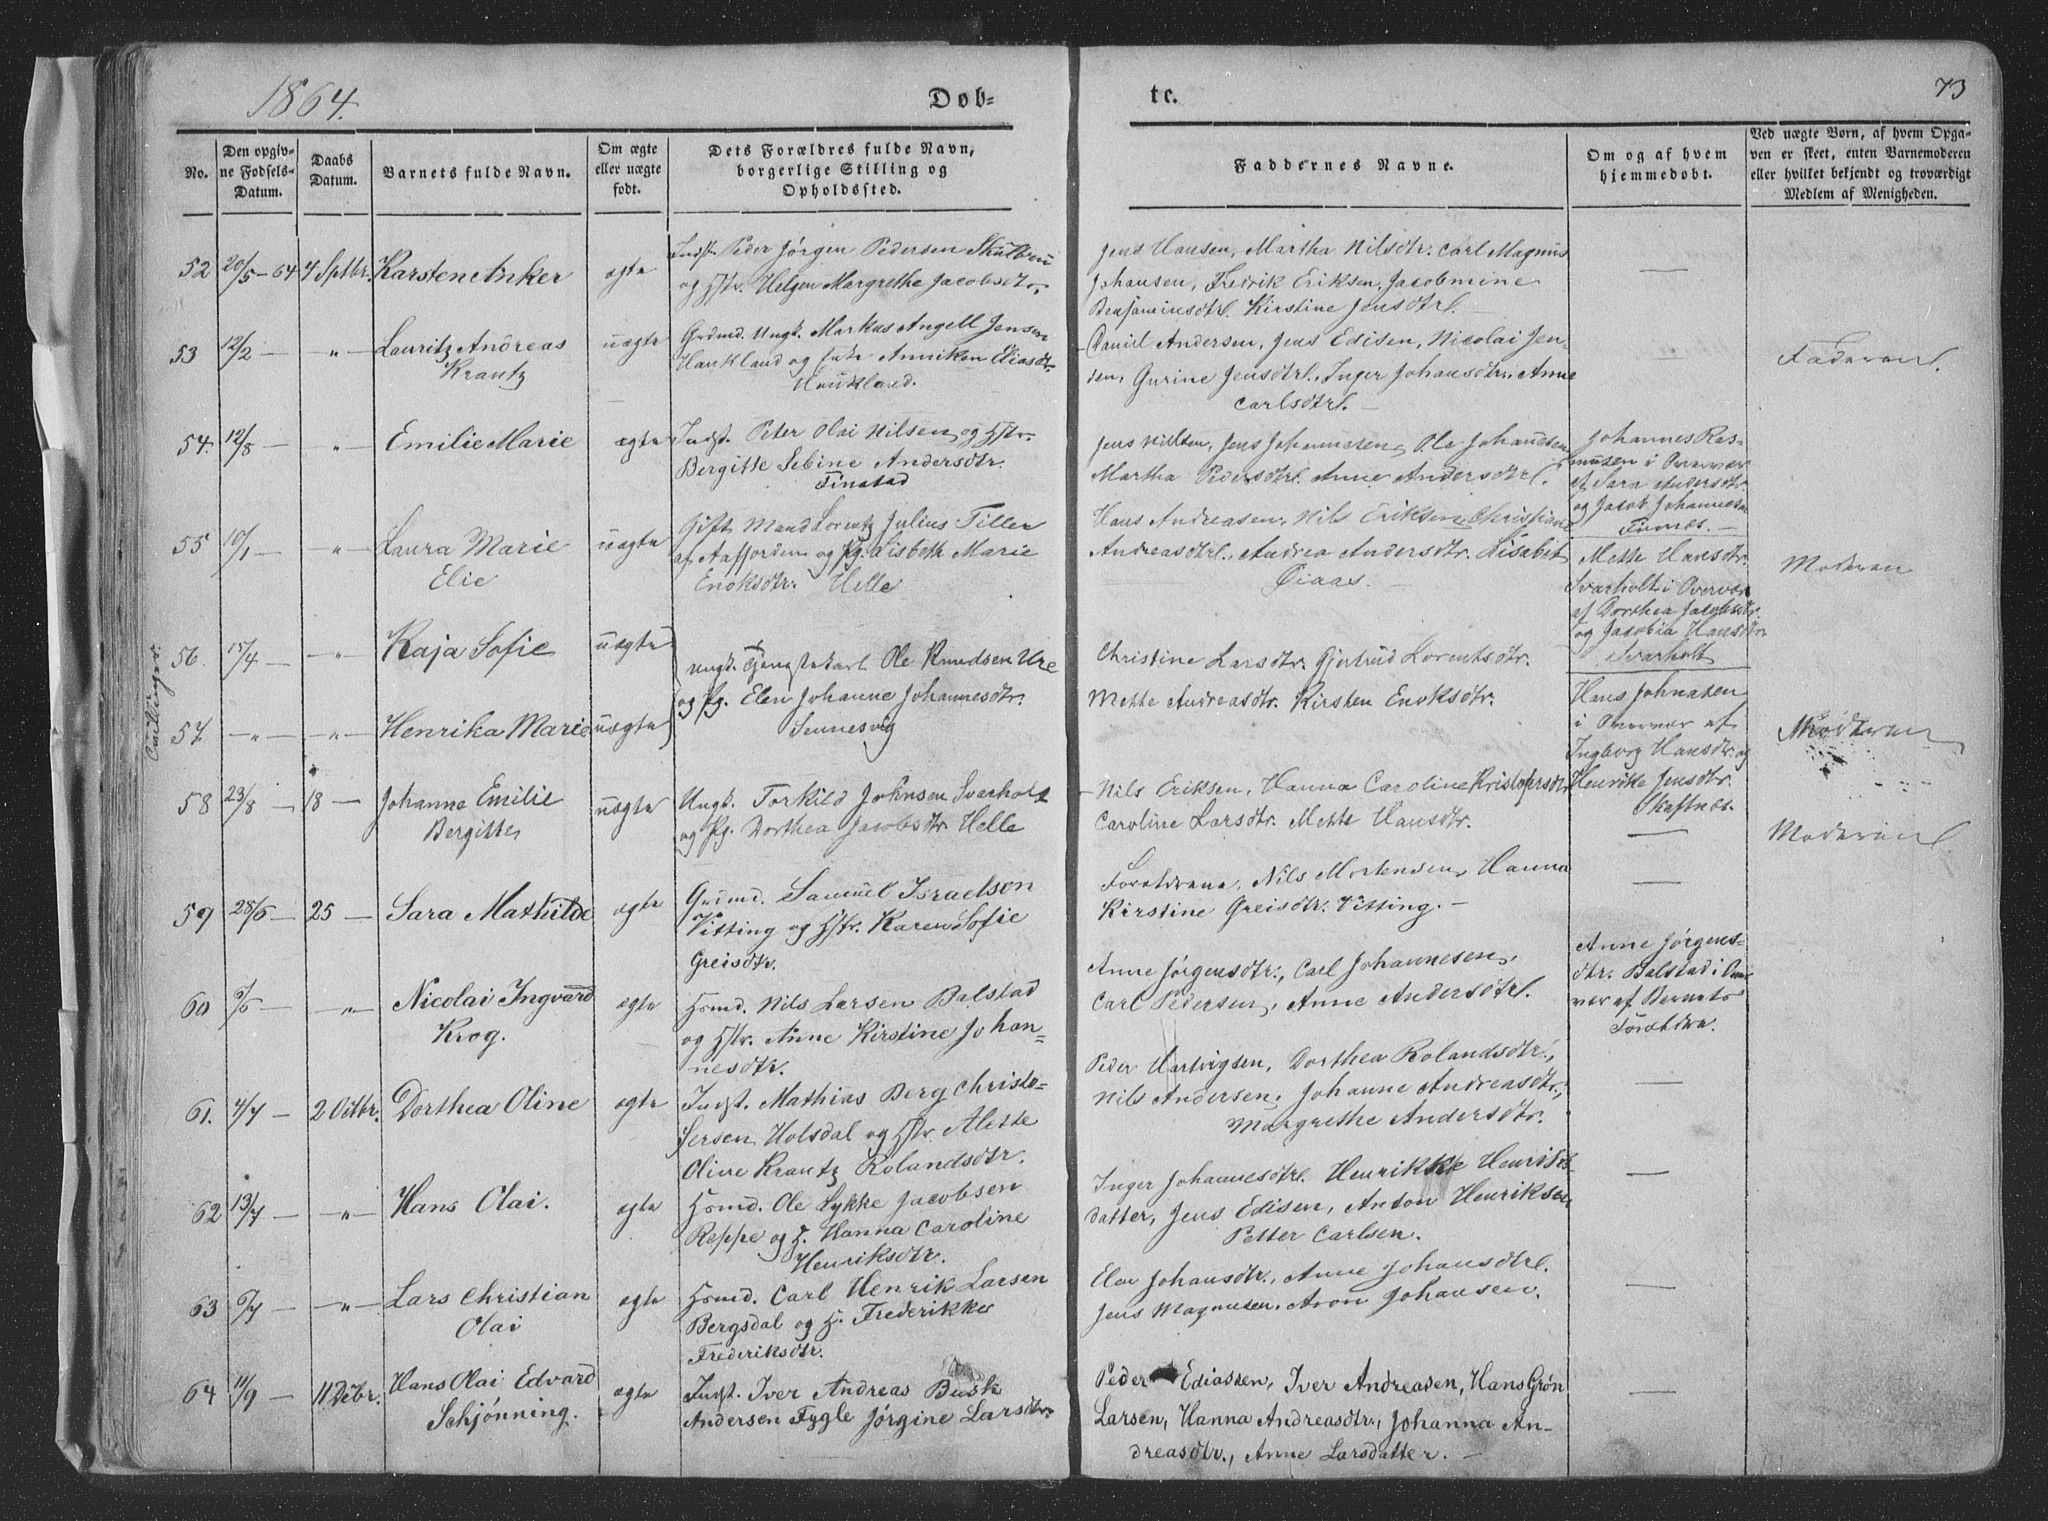 1864.
Døb-
te.
73
No.
Den opgiv-
ne Fødsels-
Datum.
Daabs
Datum.
Barnets fulde Navn.
Om ægte
eller uægte
født.
Dets Forældres fulde Navn,
borgerlige Stilling og
Opholdssted.
Faddernes Navne.
Om og af hvem
hjemmedøbt.
Ved uægte Børn, af hvem Opga-
ven er skeet, enten Barnemoderen
eller hvilket bekjendt og troværdigt
Medlem af Menigheden.
52 20/5-64 4 Sptbr. Karsten Anker ægte Indst. Peder Jørgen Pedersen
og Hstr. Helgen Margrethe Jacobsdtr.
Jens Hansen, Martha Nilsdtr. Carl Magnus
Johansen, Fredrik Eriksen, Jacobmine
Benjaminsdtr. Kirstine Jensdtr. —
53 12/2 — " — Lauritz Andreas
Krantz
uægte Grdmd. Ungk. Markus Angell Jensen
Haukland og Enke Anniken Eliasdtr.
Haukland.
Daniel Andersen, Jens Edisen, Nicolai Jen-
sen, Gurine Jensdtr., Inger Johansdtr., Anne
Carlsdtr. —
Faderen.
54. 12/8 — " — Emilie Marie ægte Indst. Peter Olai Nilsen og Hstr.
Bergitte Sebine Andersdtr.
Finstad
Jens Nielsen, Jens Johannesen, Ole Johansen
Martha Pedersdtr. Anne Andersdtr.
Johannes Ras-
musen i Overvær
af Sara Andersdtr.
og Jacob Johannesen
Finnes. —
55 10/1 — " — Laura Marie
Elie
uægte Gift Mand Lorentz Julius Tiller
af Aafjorden og Pg. Lisbeth Marie
Enoksdtr. Helle
Hans Andreasen, Nils Eriksen, Christiane
Andreasdtr., Andrea Andersdtr. Lisabet
Øiaas. —
Mette Hansdtr.
Svarholt i Overvær
af Dorthea Jacobsdtr.
og Jacobia Hansdtr.
Svarholt
Moderen
Tvillinger.
56. 15/4 — " — Kaja Sofie uægte
Ungk. Tjenestekarl Ole Knudsen Ure
og Pg. Elen Johanne Johannesdtr.
Sennesvig
Christine Larsdtr. Gjertrud Lorentsdtr.
Mette Andreasdtr. Kirsten Enoksdtr.
57. — " — — " — Henrika Marie uægte
Hans Johnsen
i Overvær af
Ingborg Hansdtr. og
Henrikke Jensdtr.
Kaftnes.
Moderen
58 23/8 — 18 — Johanne Emilie
Bergitte
uægte Ungk. Torkild Johnsen Sverholt
og Pg. Dorthea Jacobsdtr. Helle
Nils Eriksen, Hanna Caroline Kristofersdtr.
Caroline Larsdtr. Mette Hansdtr.
—
Moderen.
59 28/6 — 25 — Sara Mathilde ægte Grdmd. Samuel Israelson
Vitting og Hstr. Karen Sofie
Greisdtr.
Forældrene, Nils Mortensen, Hanna
Kirstine Greisdtr. Vitting. —
—
60 — " — Nicolai Ingvard
Krog.
ægte Hsmd. Nils Larsen Balstad
og Hstr. Anne Kirstine Johan-
nesdtr.
Anne Jørgensdtr., Carl Johannesen,
Carl Pedersen, Anne Andersdtr.
Anne Jørgens-
dtr. Balstad i Over-
vær af Barnets
Forældre.
61. 4/7 — 2 Octbr. Dorthea Oline ægte Indst. Mathias Berg Christo-
fersen Holsdal og Hstr. Alette
Oline Krantz Rolandsdtr.
Peder Hartvigsen, Dorthea Rolandsdtr.,
Nils Andersen, Johanne Andreasdtr.,
Margrethe Andersdtr.
—
62 13/7 — " — Hans Olai. ægte Hsmd. Ole Lykke Jacobsen
Reppe og H. Hanna Caroline
Henriksdtr.
Inger Johannesdtr. Henrikke Henriks-
datter, Jens Edisen, Anton Henriksen
Petter Carlsen.
—
63 6/7 — " — Lars Christian
Olai
ægte Hsmd. Carl Henrik Larsen
Bergsdal og H. Frederikke
Frederiksdtr.
Elen Johansdtr., Anne Johansdtr.
Jens Magnusen, Aron Johansen.
—
64 11/9 — 11 Dcbr. Hans Olai Edvard
Schjønning.
ægte Indst. Iver Andreas Busk
Andersen Fygle Jørgine Larsdtr.
Peder Ediassen, Iver Andreasen, Hans Grøn
Larsen, Hanna Andreasdtr., Johanna An-
dreasdtr., Anne Larsdatter. —
—